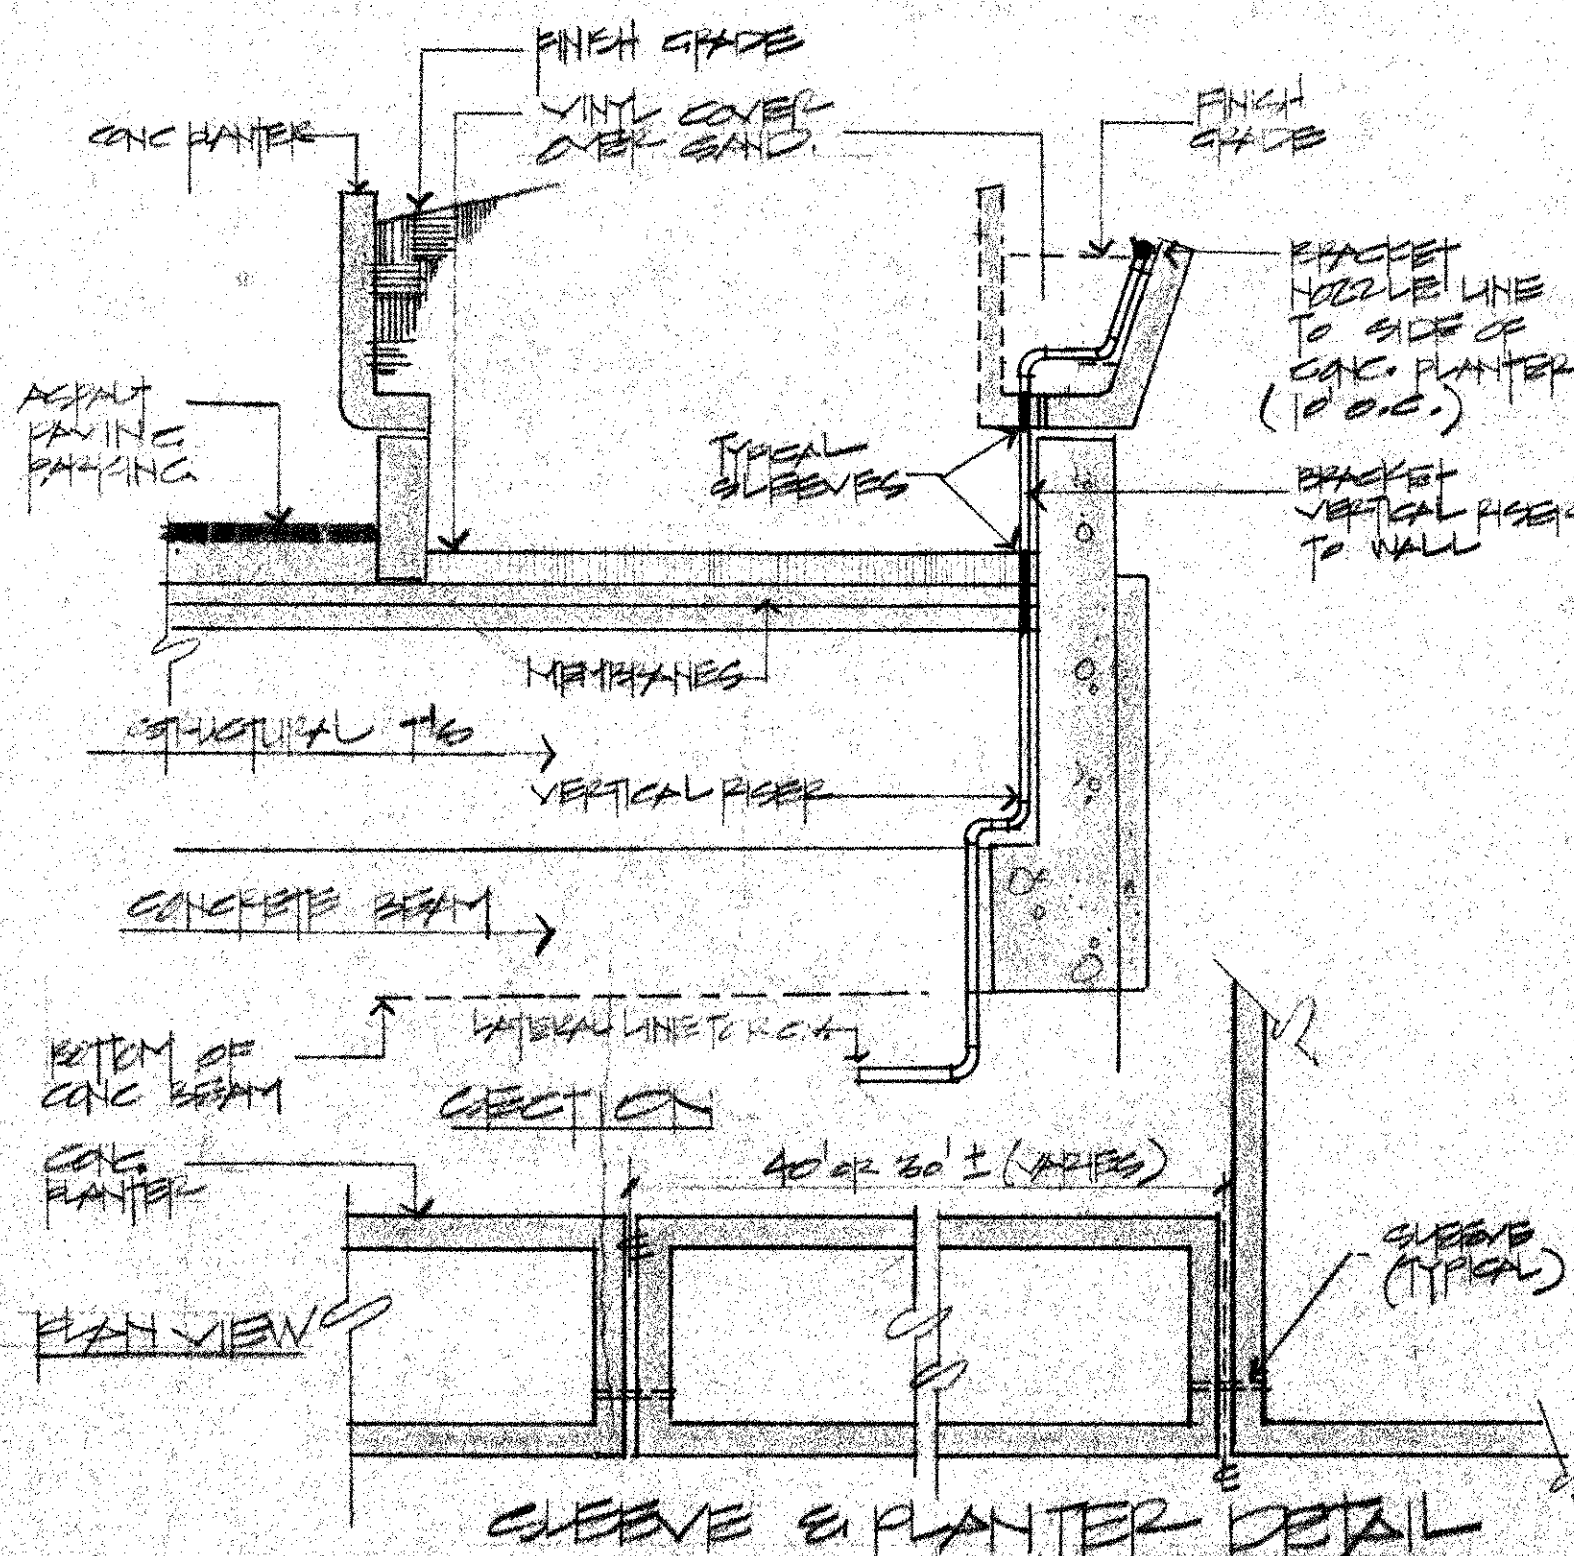 FINISH GRADE
VINYL COVER
OVER SAND.
CONC PLANTER
FINISH
GRADE
BRACKET
NOZZLE LINE
TO SIDE OF
CONC. PLANTER
(10' O.C.)
ASPALT
PAVING
PARKING
TYPICAL
SLEEVES
BRACKET
VERTICAL RISER
TO WALL
MEMBRANES
STRUCTURAL T'S
VERTICAL RISER
CONCRETE BEAM
LATERAL LINE TO R.C.V.
BOTTOM OF
CONC BEAM
SECTION
CONC.
PLANTER
40' OR 30' ± (VARIES)
SLEEVE
(TYPICAL)
PLAN VIEW
SLEEVE & PLANTER DETAIL